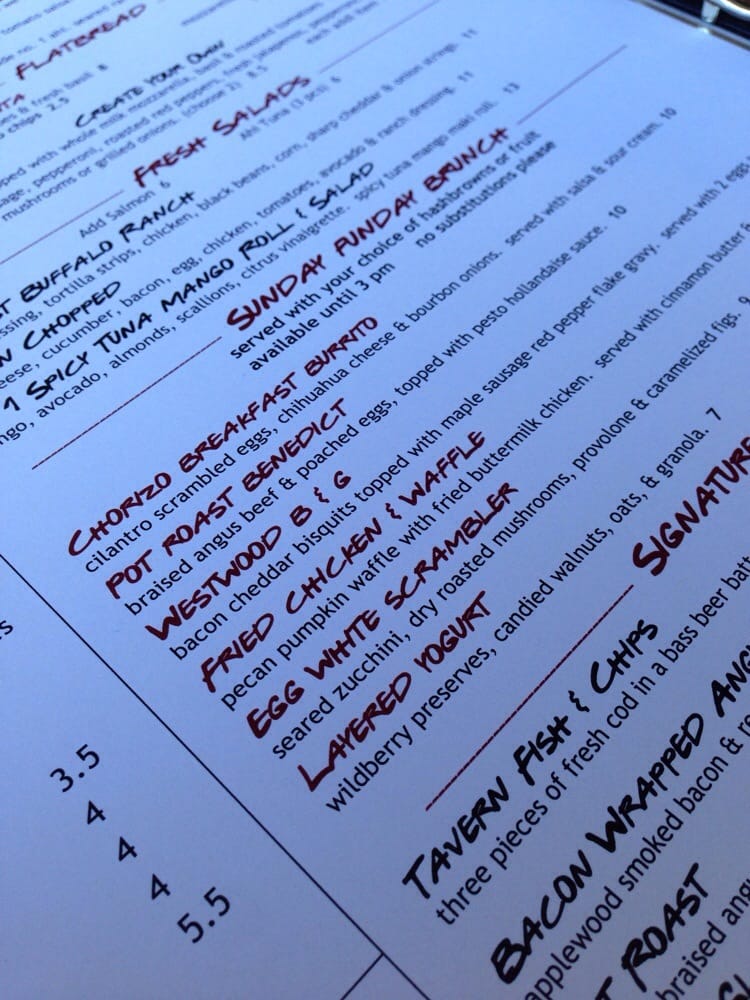 tomato salsa
FLATBREAD
& fresh basil 8
chips 2.5
CREATE YOUR OWN
each add item
topped with whole milk mozzarella, basil & roasted tomatoes.
sausage, pepperoni, roasted red peppers, fresh jalapenos,
mushrooms or grilled onions. (choose 2) 8.5
FRESH SALADS
Add Salmon 6
Ahi Tuna (3 pcs) 6
BUFFALO RANCH
tortilla strips, chicken, black beans, corn, sharp cheddar & onion strings. 11
CHOPPED
cucumber, bacon, egg, chicken, tomatoes, avocado & ranch dressing. 11
SPICY TUNA MANGO ROLL & SALAD
avocado, almonds, scallions, citrus vinaigrette. spicy tuna mango maki roll. 13
SUNDAY FUNDAY BRUNCH
served with your choice of hashbrowns or fruit
available until 3 pm no substitutions please
CHORIZO BREAKFAST BURRITO
cilantro scrambled eggs, chihuahua cheese & bourbon onions. served with salsa & sour cream. 10
POT ROAST BENEDICT
braised angus beef & poached eggs, topped with pesto hollandaise sauce. 10
WESTWOOD B & G
bacon cheddar bisquits topped with maple sausage red pepper flake gravy. served with 2 eggs
FRIED CHICKEN & WAFFLE
pecan pumpkin waffle with fried buttermilk chicken. served with cinnamon butter
EGG WHITE SCRAMBLER
seared zucchini, dry roasted mushrooms, provolone & caramelized figs. 9
LAYERED YOGURT
wildberry preserves, candied walnuts, oats, & granola. 7
SIGNATURE
TAVERN FISH & CHIPS
three pieces of fresh cod in a bass beer
BACON WRAPPED
applewood smoked bacon &
ROAST
braised
3.5
4
4
4
5.5